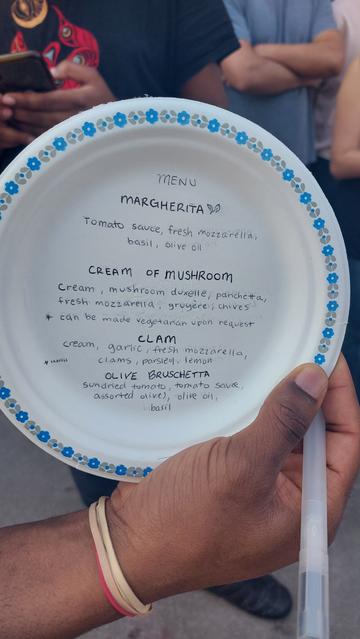 MENU
MARGHERITA
Tomato sauce, fresh mozzarella,
basil, olive oil
CREAM OF MUSHROOM
Cream, mushroom duxelle, panchetta,
fresh mozzarella, gruyère, chives
* can be made vegetarian upon request
CLAM
cream, garlic, fresh mozzarella,
clams, parsley, lemon
OLIVE BRUSCHETTA
sundried tomato, tomato sauce,
assorted olives, olive oil,
basil